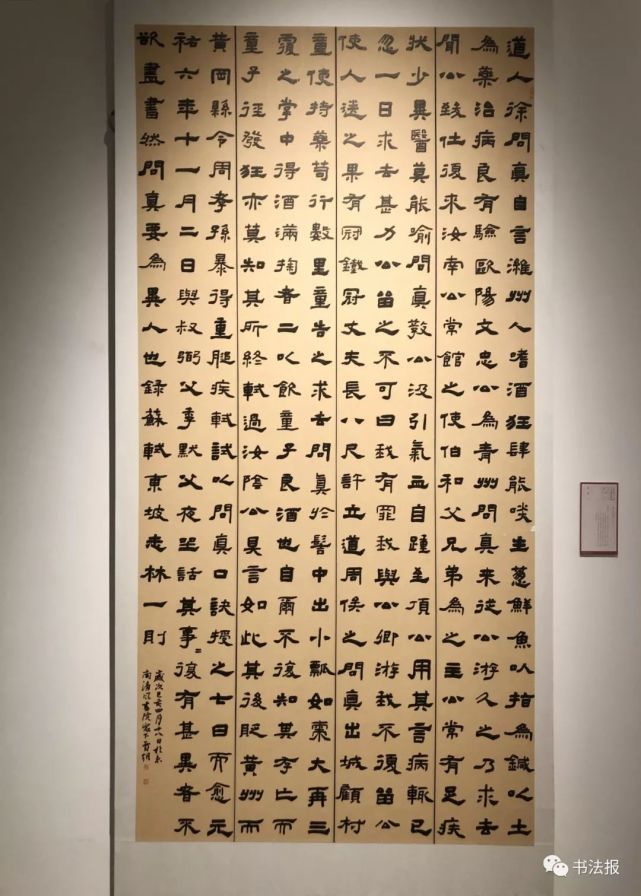 道人徐問真自言濰州人嗜酒狂肆能啖生蔥鮮魚以指為鍼以土
為藥治病良有驗歐陽文忠公為青州問真来從公游久之乃求去
聞公致仕復来汝南公常館之使伯和父兄弟為之主公常有足疾
狀少異醫莫能喻問真教公汲引氣血自踵至頂公用其言病輒已
忽一日求去甚力公留之不可曰我有罪我與公卿游我不復留公
使人送之果有冠鐵冠丈夫長八尺許立道周俟之問真出城顧村
童使持藥笥行數里童告之求去問真於髻中出小瓢如棗大再三
覆之掌中得酒滿掬者二以飲童子良酒也自爾不復知其存亡而
童子徑發狂亦莫知其所終軾過汝陰公具言如此其後貶黄州而
黄岡縣令周孝孫暴得重膇疾軾試以問真口訣授之七日而愈元
祐六年十一月二日與叔弼父季默父夜坐話其事〻復有甚異者不
欲盡書然問真要為異人也錄蘇軾東坡志林一則
歲次己亥四月十八日於京
南書院窗下
书法报